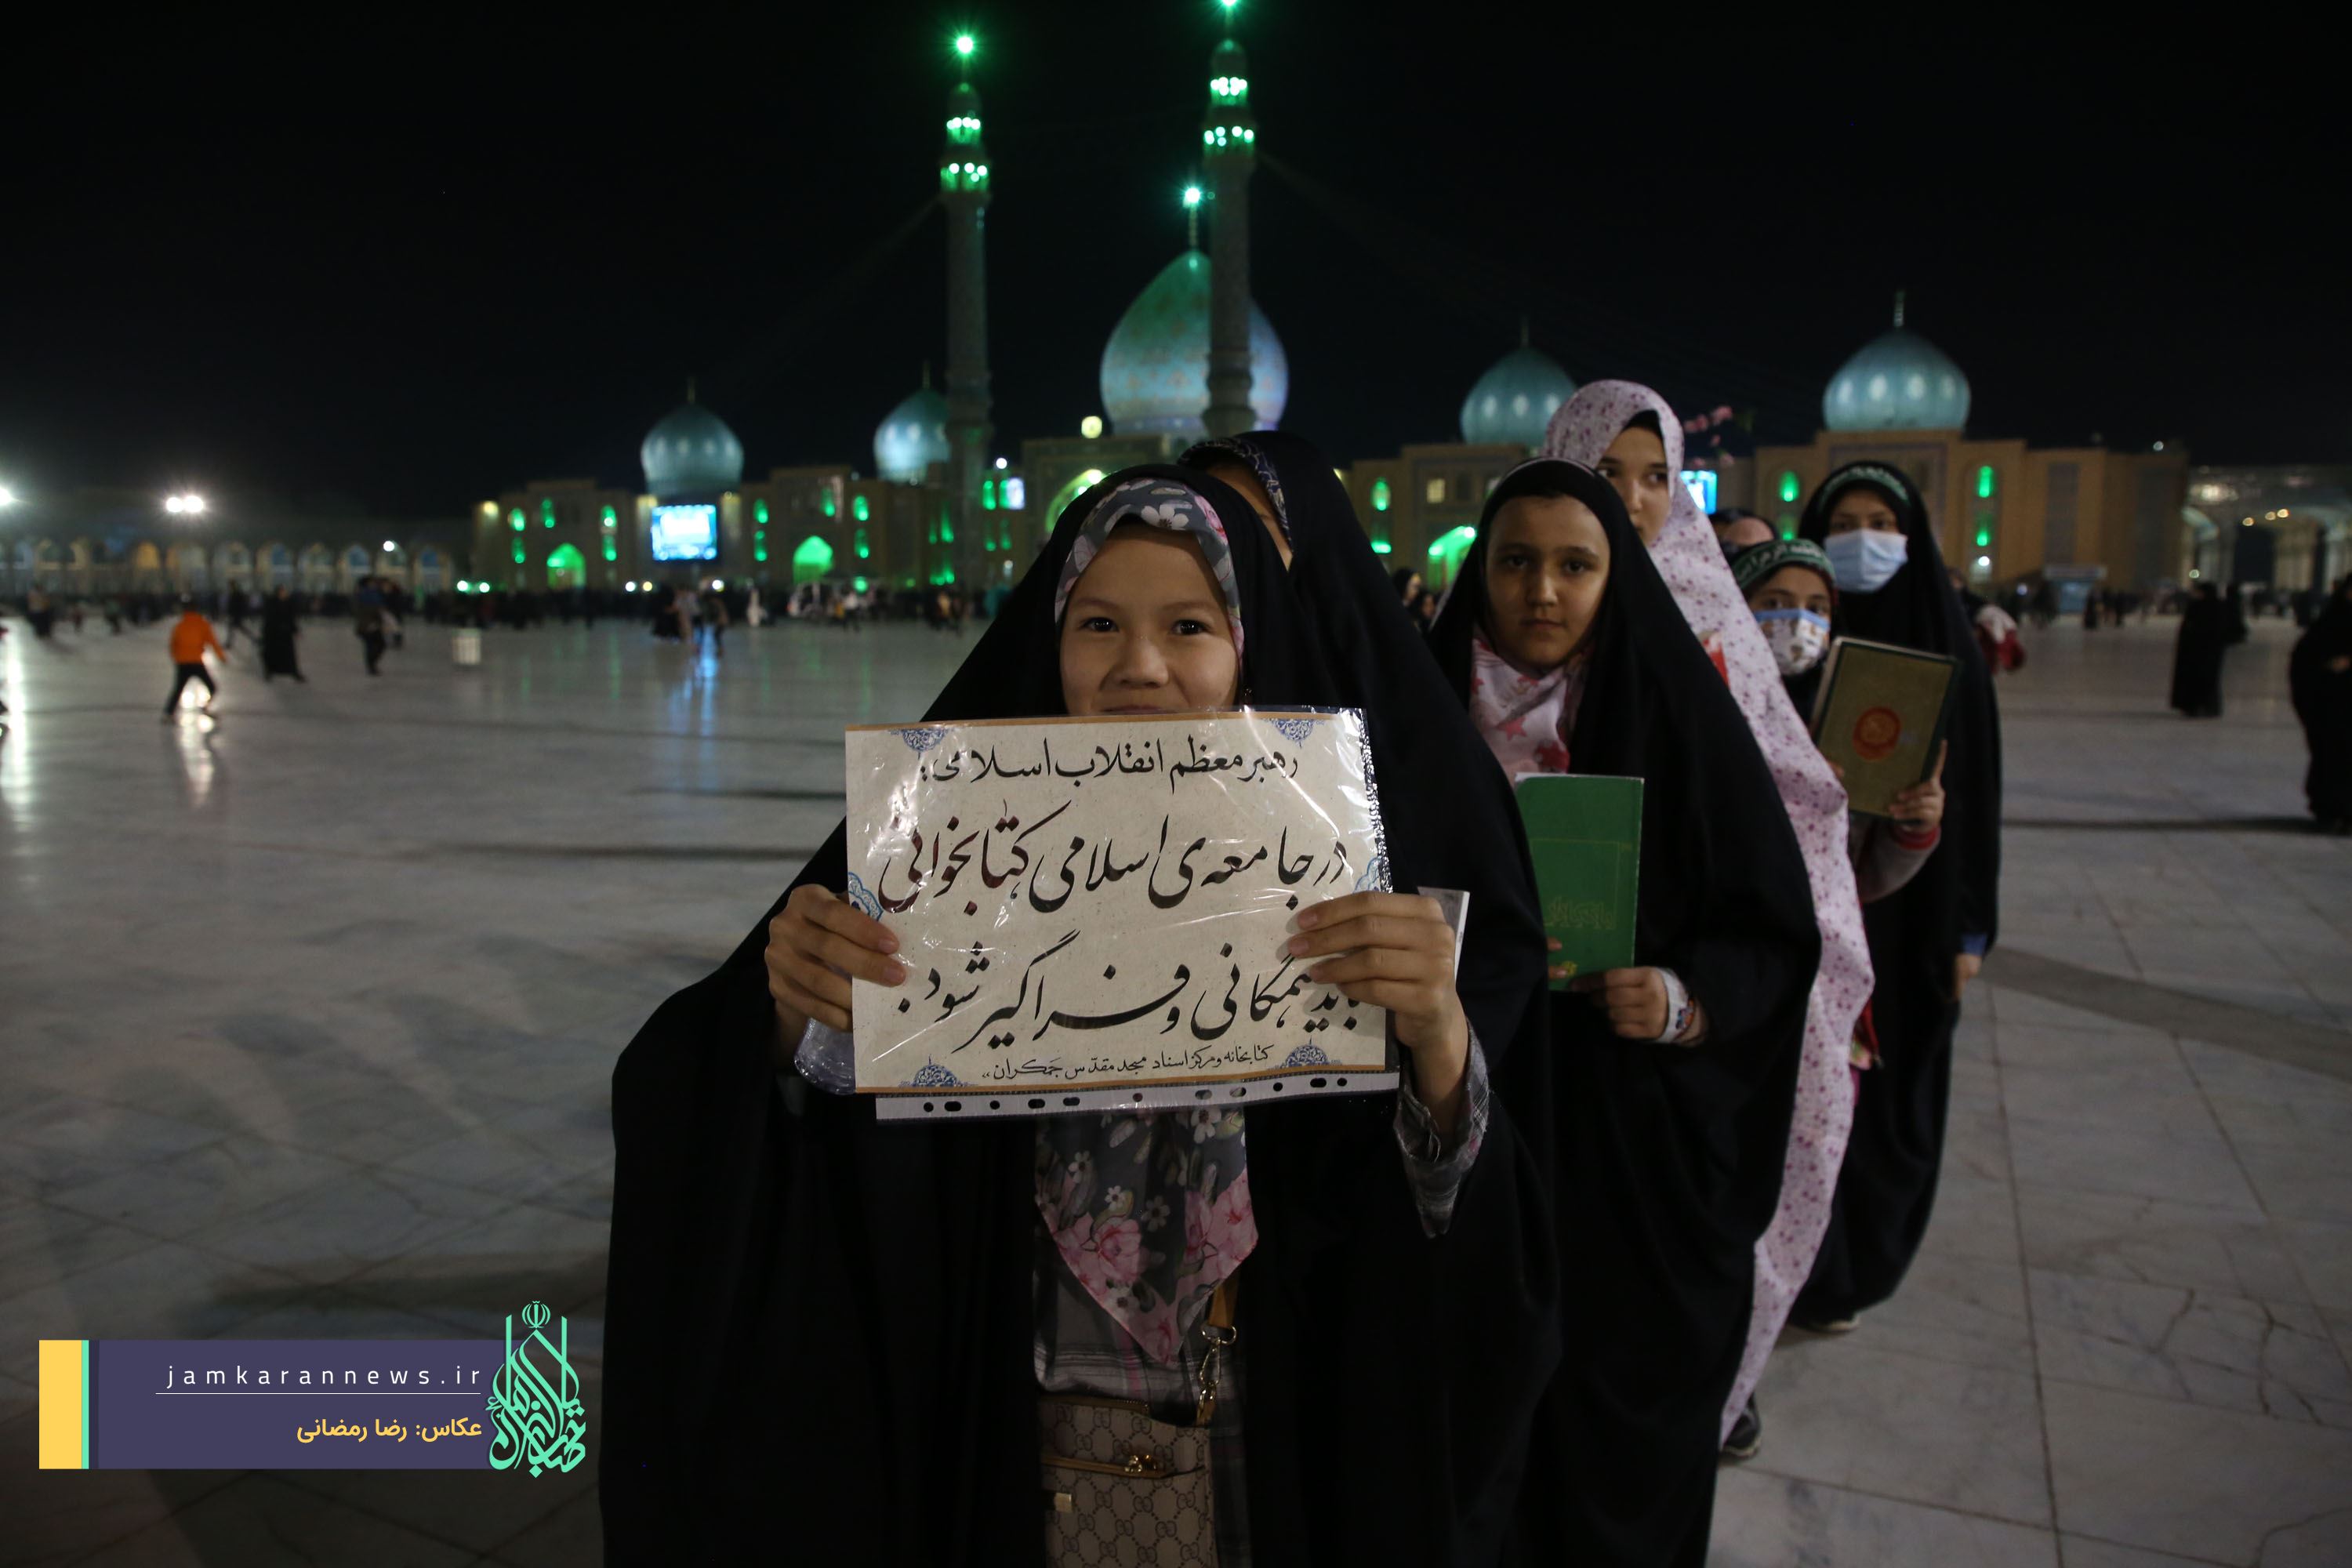 رهبر معظم انقلاب اسلامی:
در جامعه‌ی اسلامی کتابخوانی
باید همگانی و فراگیر شود.
کتابخانه و مرکز اسناد مسجد مقدّس جمکران
jamkarannews.ir
عکاس: رضا رمضانی